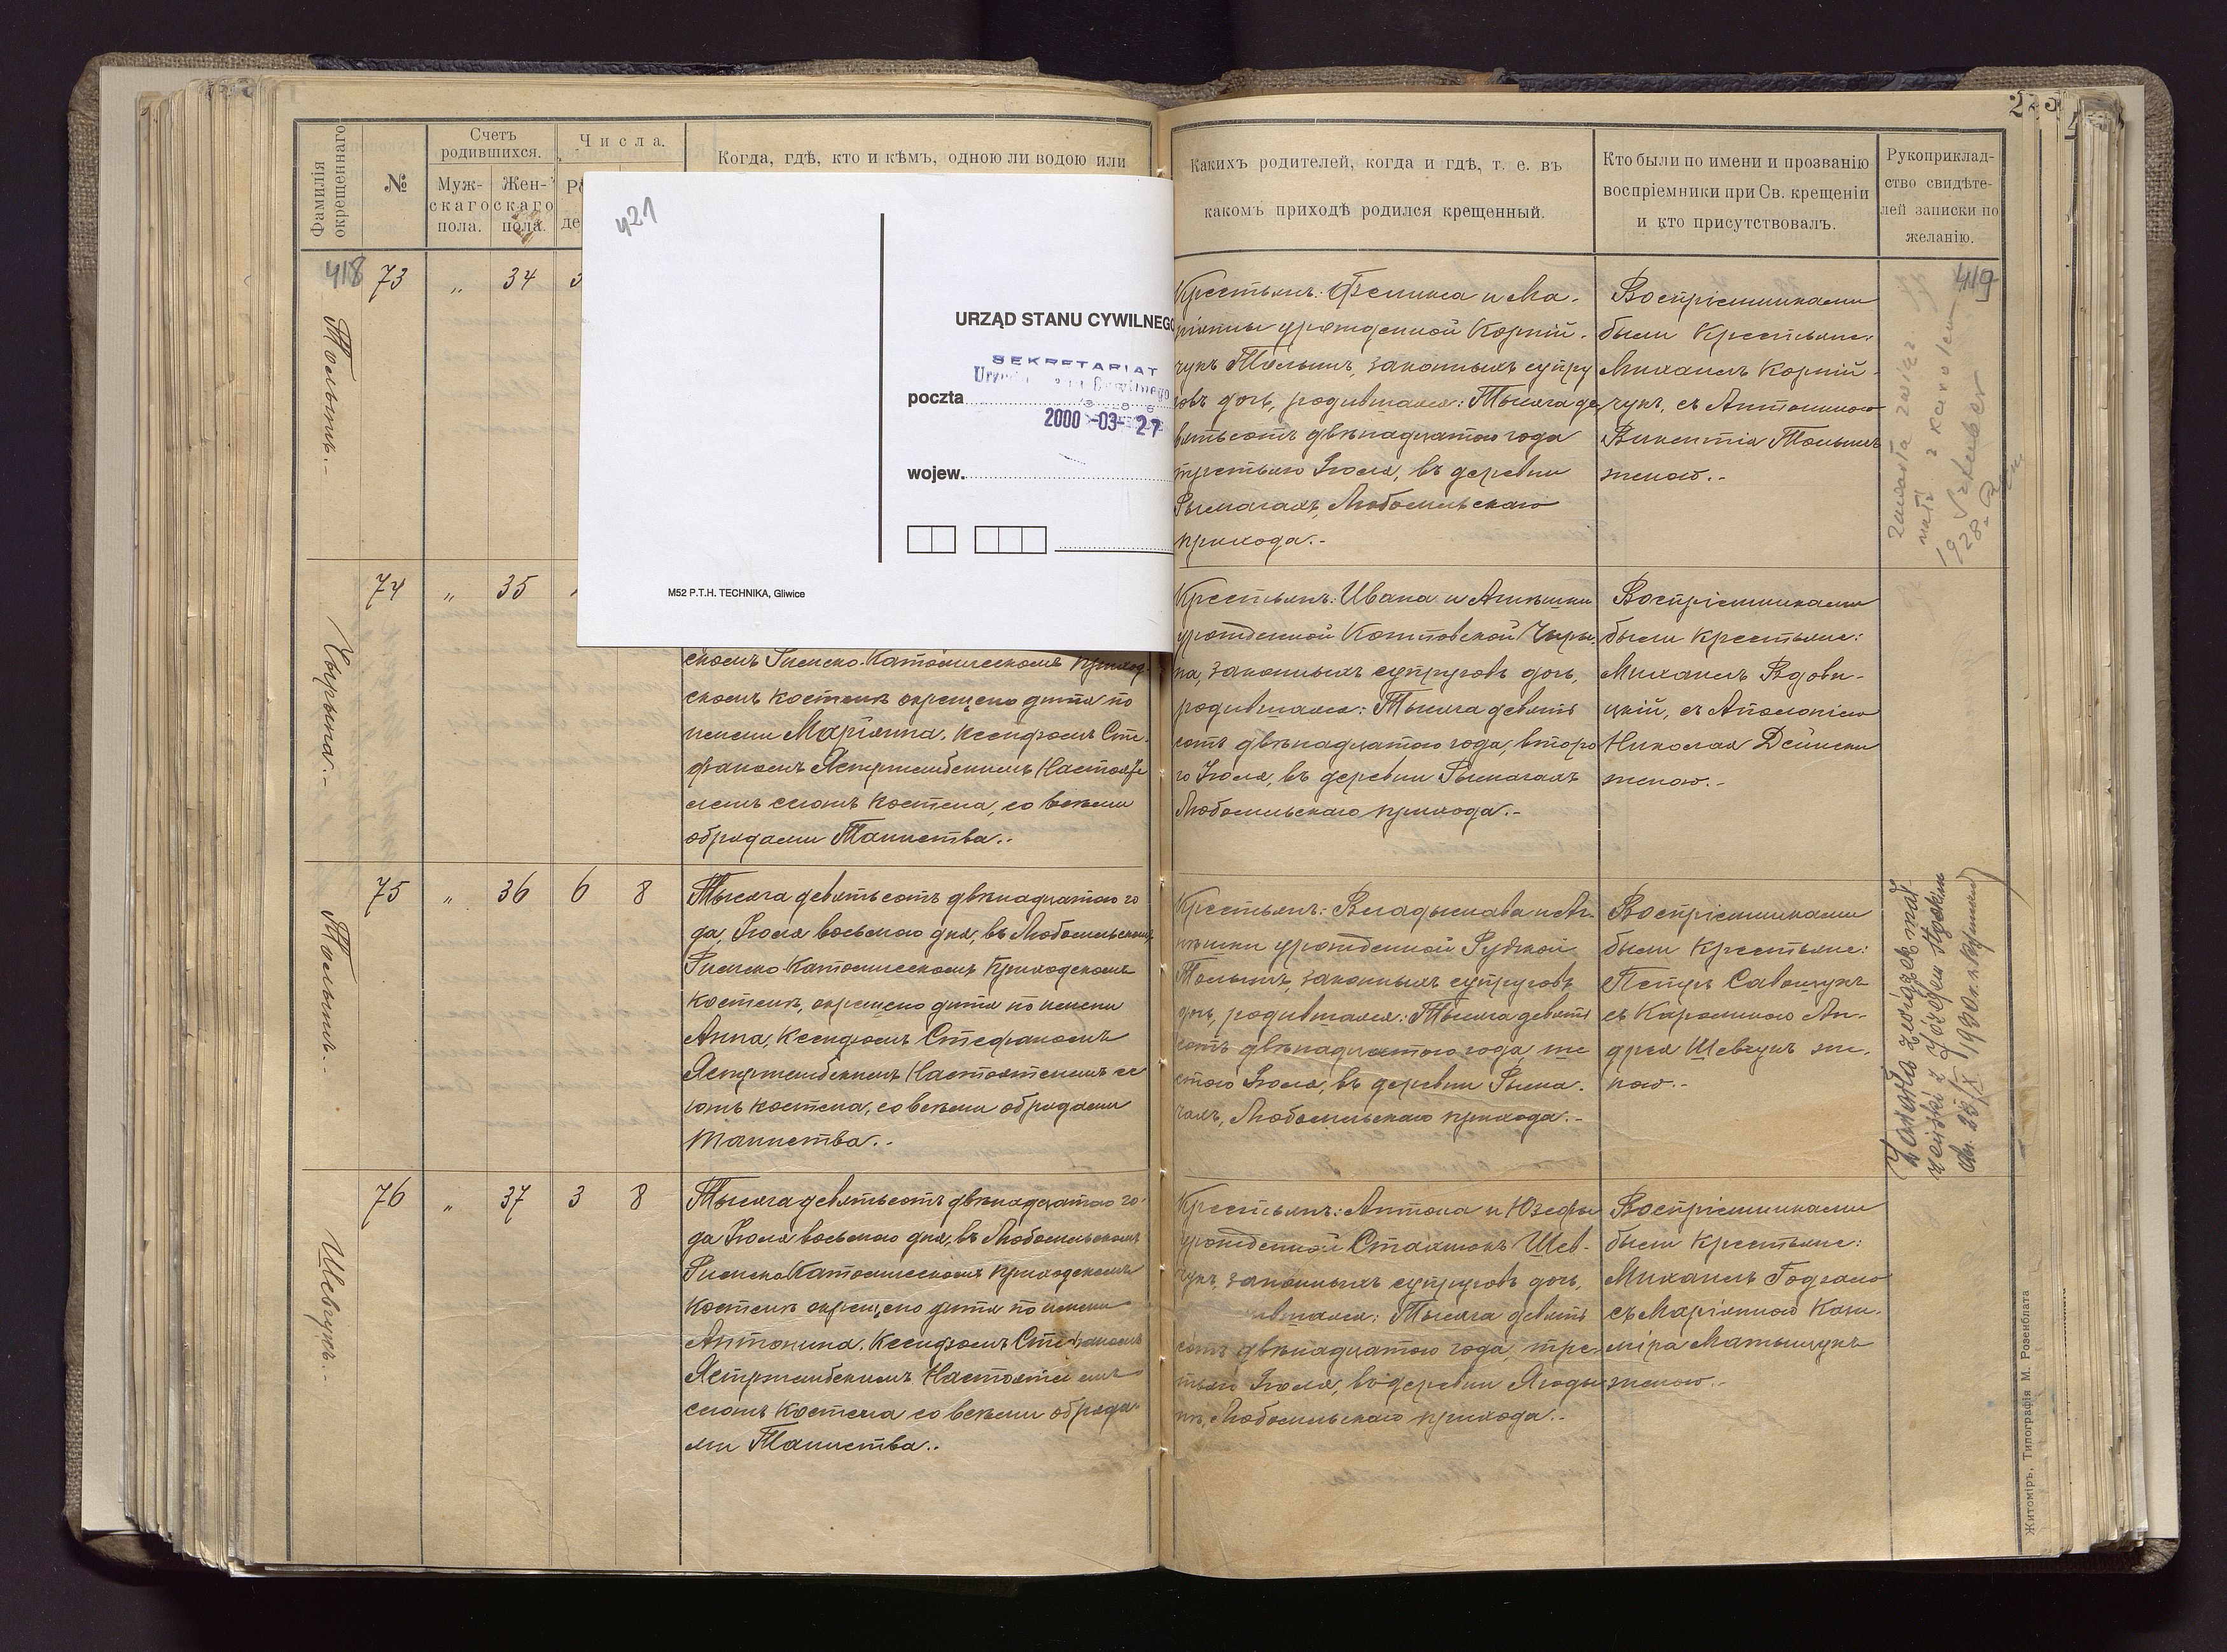 Фамилія окрещеннаго
№
Счетъ родившихся.
Муж-
скаго
пола.
Жен-
скаго
пола.
Числа.
Когда, гдѣ, кто и кѣмъ, одною ли водою или
418
73
„
34
Тольпъ.-
74
„
35
Чырыпа.-
скомъ Римско-Католическомъ приход-
скомъ костелѣ окрещено дитя по
имени Маріянна, Ксендзомъ Сте-
фаномъ Ястржембскимъ Настояте
лемъ сегожъ костела, со всѣми
обрядами Таинства..
75
„
36
6
8
Тысяча девятьсотъ двѣнадцатаго го
да, Іюля восьмого дня, въ Любомльскомъ
Римско Католическомъ Приходскомъ
костелѣ, окрещено дитя по имени
Анна, Ксендзомъ Стефаномъ
Ястржембскимъ Настоятелемъ се
гожъ костела, со всѣми обрядами
Таинства..
76
„
37
3
8
Шевчукъ.-
Тысяча девятьсотъ двѣнадцатаго го-
да Іюля восьмого дня, въ Любомльскомъ
Римско Католическомъ Приходскомъ
Костелѣ окрещено дитя по имени
Антонина. Ксендзомъ Стефаномъ
Ястржембскимъ Настоятелемъ
сегожъ Костела со всѣми обряда-
ми Таинства..
421
URZĄD STANU CYWILNEGO
SEKRETARIAT
poczta
2000 -03- 27
wojew.
M52 P.T.H. TECHNIKA, Gliwice
Какихъ родителей, когда и гдѣ, т. е. въ
какомъ приходѣ родился крещенный.
Кто были по имени и прозванію
воспріемники при Св. крещеніи
и кто присутствовалъ.
Рукоприклад-
ство свидѣте-
лей записки по
желанію.
419
Крестьянъ: Феликса и Ма-
ріянны урожденной Корній-
чукъ Тольпъ, законныхъ супру
говъ дочь, родившаяся: Тысяча де-
вятьсотъ двѣнадцатаго года
третьяго Іюля, въ деревни
Рымачахъ, Любомльскаго
прихода.-
Воспріемниками
были Крестьяне:
Михаилъ Корній-
чукъ, съ Антониною
Викентія Тольпъ
женою.-
Крестьянъ: Ивана и Агнѣшки
урожденной Котовской Чыры-
па, законныхъ супруговъ дочь,
родившаяся: Тысяча девять
сотъ двѣнадцатаго года, второ
го Іюля, въ деревни Рымачахъ
Любомльскаго прихода.-
Воспріемниками
были крестьяне:
Михаилъ Вдови-
цкій, съ Аполоніею
Николая Дейнеки
женою.-
Крестьянъ: Владыслава и Аг-
нѣшки урожденной Рудской
Тольпъ, законныхъ супруговъ
дочь, родившаяся: Тысяча девять
сотъ двѣнадцатаго года, ше
стого Іюля, въ деревни Рыма-
чахъ, Любомльскаго прихода.-
Воспріемниками
были Крестьяне:
Петръ Савощукъ
съ Каролиною Ан-
дрея Шевчукъ же-
ною.-
Zawarła związek mał
żeński z Józefem
dn. 23/X 1930 r.
Крестьянъ: Антона и Юзефы
урожденной Стахнюкъ Шев-
чукъ, законныхъ супруговъ дочь,
родившаяся: Тысяча девять
сотъ двѣнадцатаго года, тре-
тьяго Іюля, въ деревни Ягоды
нѣ, Любомльскаго прихода.-
Воспріемниками
были Крестьяне:
Михаилъ
съ Маріянною Кази-
міра Матыщукъ
женою.-
Житоміръ, Типографія М. Розенблата